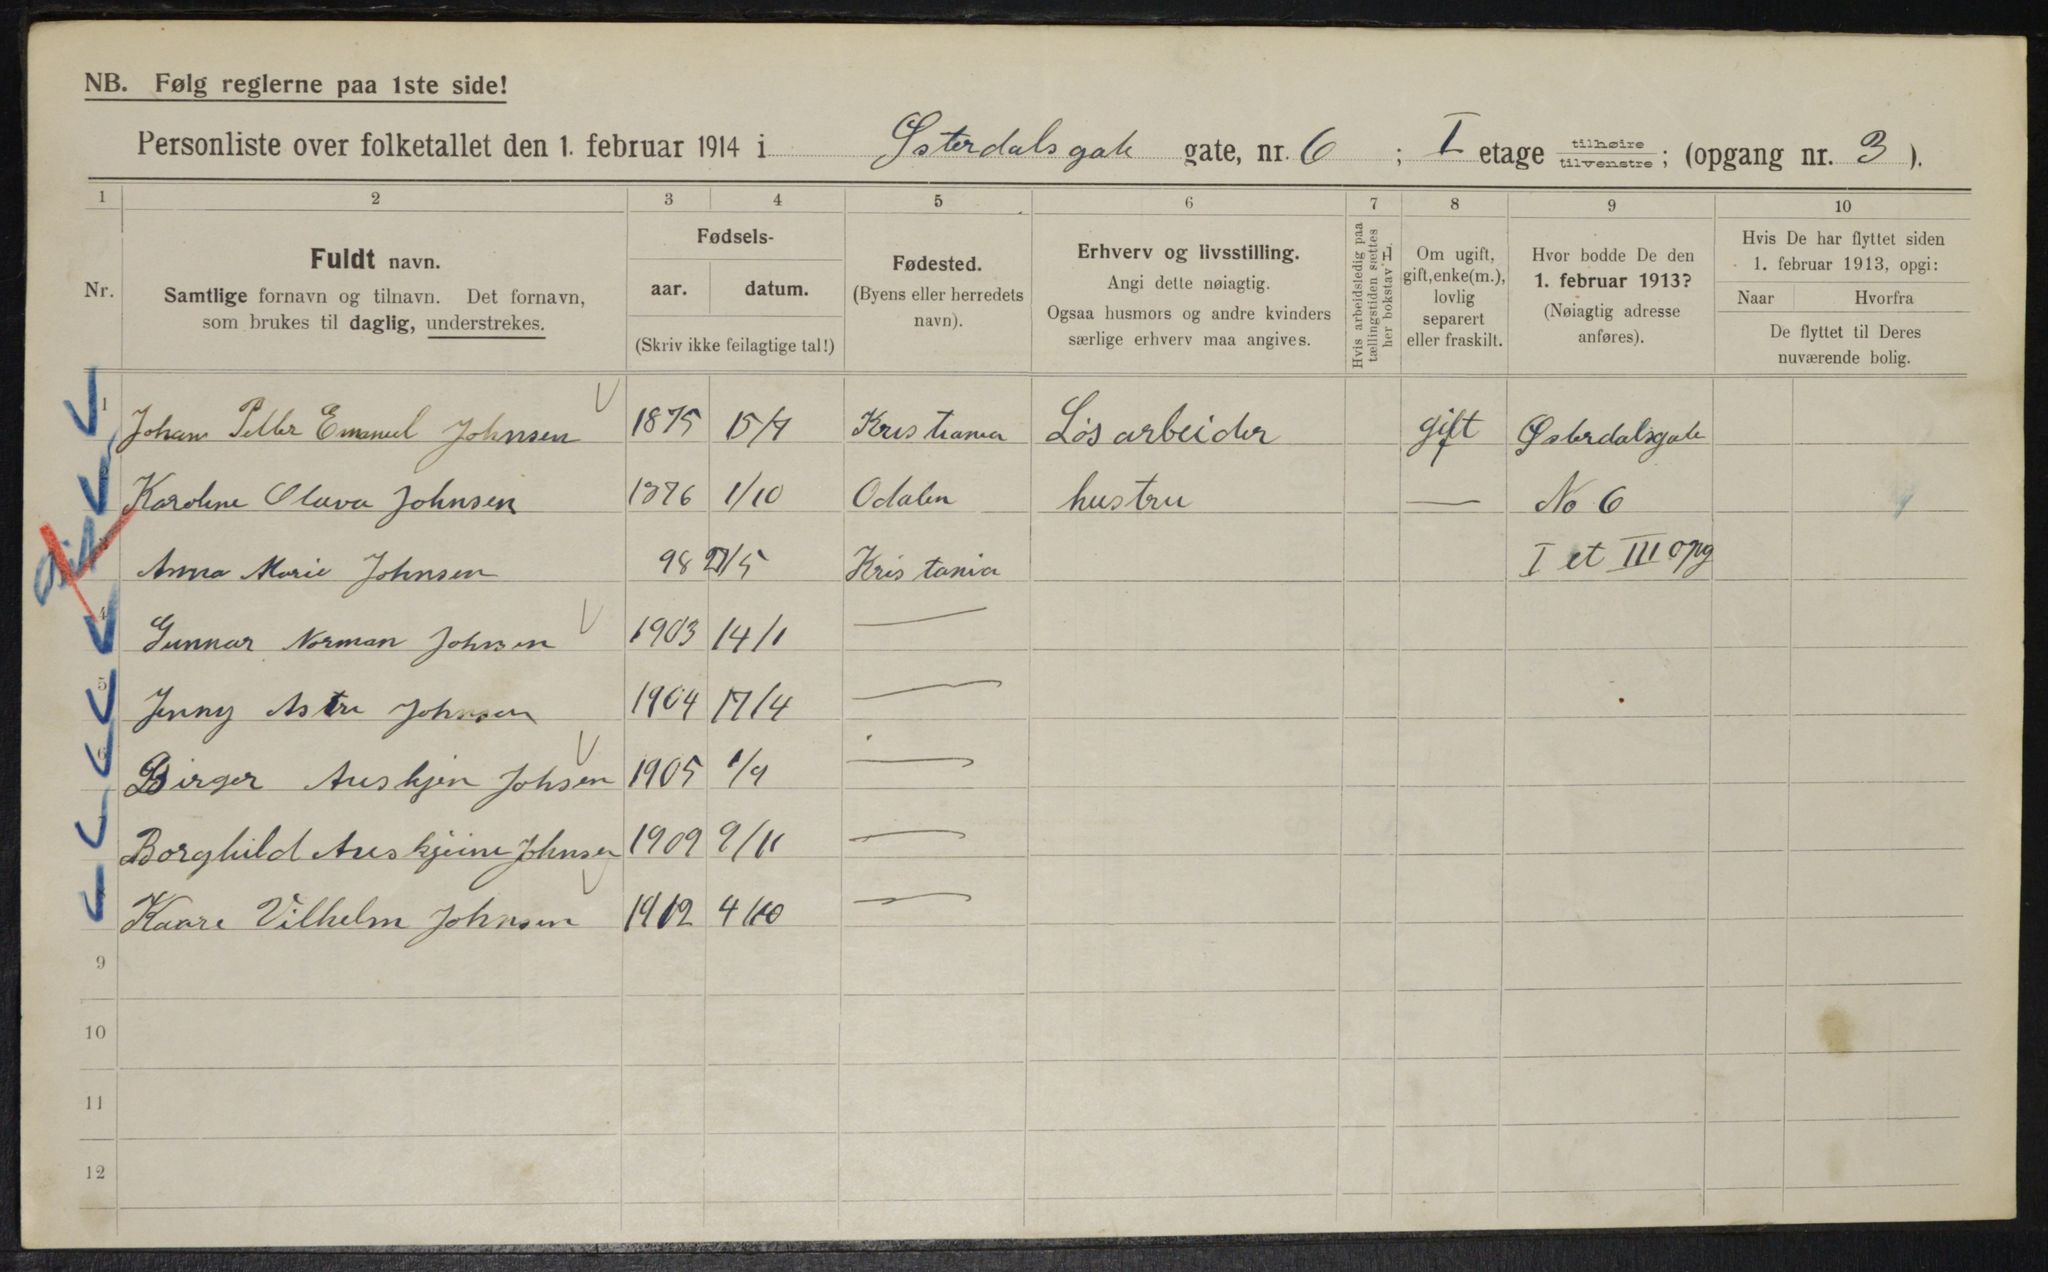 NB. Følg reglerne paa 1ste side!
Personliste over folketallet den 1. februar 1914 i Østerdalsgate gate, nr. 6 ; I etage tilhøire tilvenstre; (opgang nr. 3 ).
1 2 3 4 5 6 7 8 9 10
Nr.
Fuldt navn.
Samtlige fornavn og tilnavn. Det fornavn,
som brukes til daglig, understrekes.
Fødsels-
aar. datum.
(Skriv ikke feilagtige tal!)
Fødested.
(Byens eller herredets
navn).
Erhverv og livsstilling.
Angi dette nøiagtig.
Ogsaa husmors og andre kvinders
særlige erhverv maa angives.
Hvis arbeidsledig paa
tællingstiden sættes
her bokstav L
Om ugift,
gift, enke(m.),
lovlig
separert
eller fraskilt.
Hvor bodde De den
1. februar 1913?
(Nøiagtig adresse
anføres).
Hvis De har flyttet siden
1. februar 1913, opgi:
Naar Hvorfra
De flyttet til Deres
nuværende bolig.
1 Johan Petter Emanuel Johnsen 1875 15/7 Kristiania Løsarbeider gift Østerdalsgate
Karoline Olava Johnsen 1876 1/10 Odalen hustru — No 6
3 Anna Marie Johnsen 98 /5 Kristania I et III opg
4 Gunnar Norman Johnsen 1903 14/1 —
5 Jenny Astri Johnsen 1904 17/4 —
6 Birger Auskjen Johsen 1905 1/9 —
Borghild Auskjeine Johnsen 1909 9/11 —
Kaare Vilhelm Johnsen 1912 4/10 —
9
10
11
12